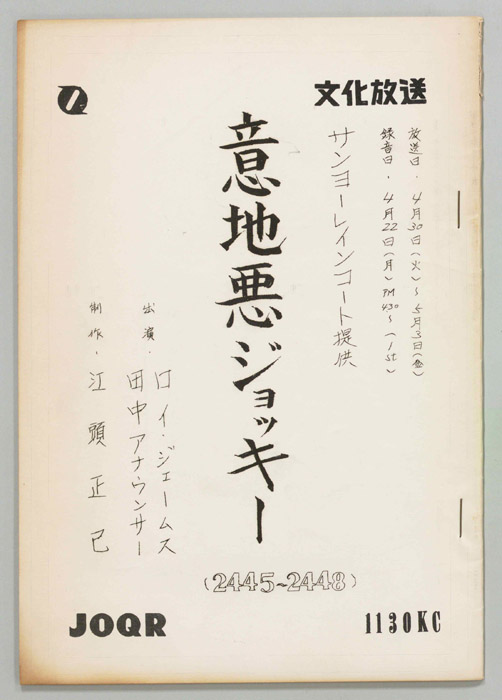 文化放送
放送日・4月30日(火)~5月3日(金)
録音日・4月22日(月)PM430~(1st)
サンヨーレインコート提供
意地悪ジョッキー
(2445~2448)
出演・ロイ・ジェームス
田中アナウンサー
制作・江頭正巳
JOQR
1130KC